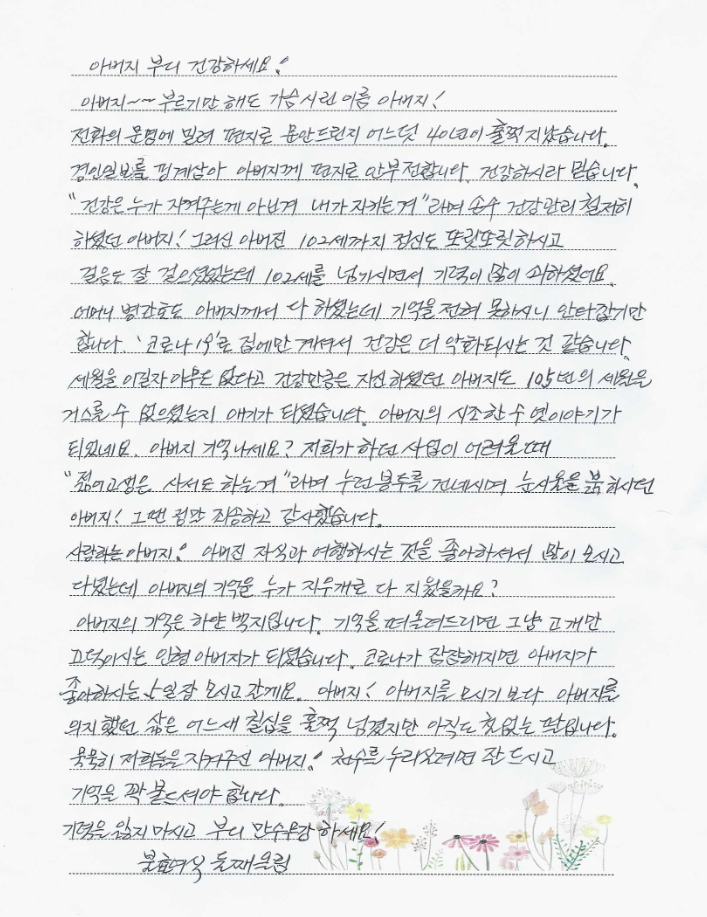 아버지 부디 건강하세요!
아버지~~ 부르기만 해도 가슴시린 이름 아버지!
전화의 문명에 밀려 편지로 문안드린지 어느덧 40년이 훌쩍 지났습니다.
경인일보를 핑계삼아 아버지께 편지로 안부전합니다. 건강하시라 믿습니다.
"건강은 누가 지켜주는게 아닌겨 내가 지키는겨"라며 손수 건강관리 철저히
하셨던 아버지! 그러신 아버진 102세까지 정신도 또랏또랏하시고
걸음도 잘 걸으셨었는데 102세를 넘기시면서 기력이 많이 쇠하셨어요.
어머니 병간호도 아버지께서 다 하셨는데 기억을 전혀 못하시니 안타깝기만
합니다. '코로나19'로 집에만 계셔서 건강은 더 악화되시는 것 같습니다.
세월을 이길자 아무도 없다고 건강만큼은 자신하셨던 아버지도 105년의 세월은
거스를 수 없으셨는지 애기가 되셨습니다. 아버지의 시조 한 수 옛이야기가
되었네요. 아버지 기억나세요? 저희가 하던 사업이 어려울때
"젊어고생은 사서도 하는겨"라며 누런봉투를 건네시며 눈시울을 붉히시던
아버지! 그땐 정말 죄송하고 감사했습니다.
사랑하는 아버지! 아버진 자식과 여행하시는 것을 좋아하셔서 많이 모시고
다녔는데 아버지의 기억을 누가 지우개로 다 지웠을까요?
아버지의 기억은 하얀 백지입니다. 기억을 떠올려드리면 그냥 고개만
끄덕이시는 인형 아버지가 되셨습니다. 코로나가 잠잠해지면 아버지가
좋아하시는 5일장 모시고 갈게요. 아버지! 아버지를 모시기 보다 아버지를
의지했던 삶은 어느새 칠십을 훌쩍 넘겼지만 아직도 철없는 딸입니다.
묵묵히 저희들을 지켜주신 아버지! 천수를 누리시려면 잘 드시고
기억을 꽉 붙드셔야 합니다.
기력을 잃지 마시고 부디 만수무강 하세요!
불효여식 둘째올림